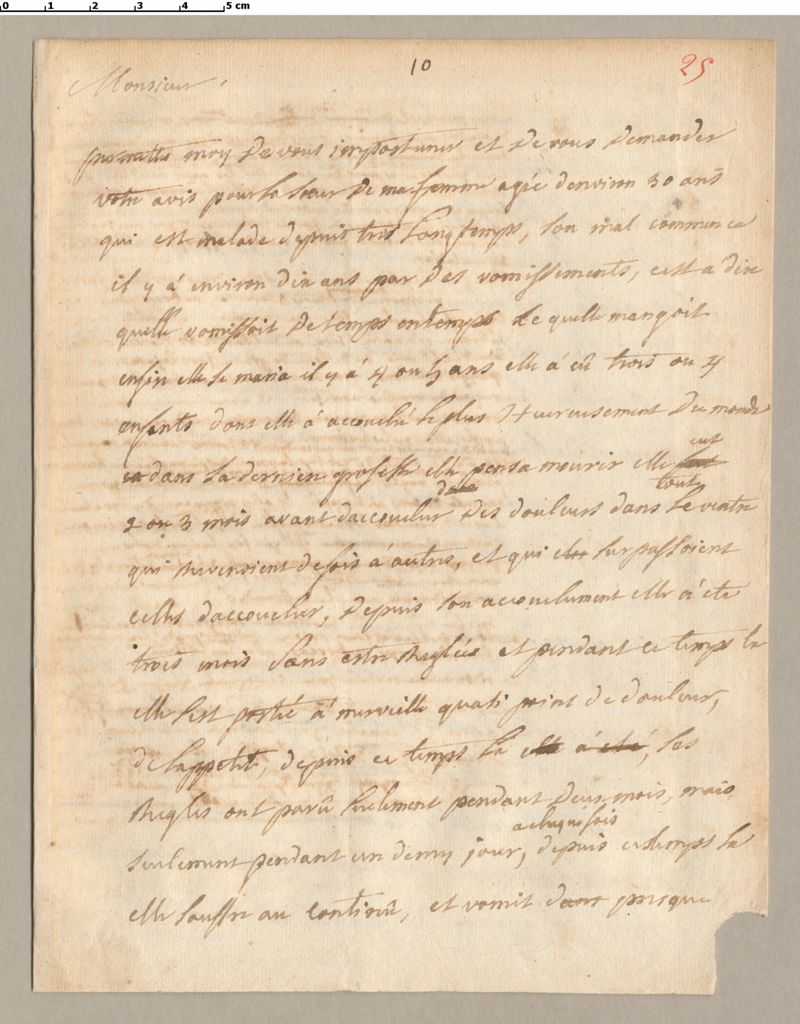 0 1 2 3 4 5 cm
10
25
Monsieur,
permettes moy de vous importuner et de vous demander
votre avis pour la sœur de ma femme agée denviron 30 ans
qui est malade depuis tres longtemps, son mal commenca
il y á environ dix ans par des vomissements, cest a dire
quelle vomissoit de temps en temps ce quelle mangoit
enfin elle se maria il y á 4 ou 5 ans elle á eû trois ou 4
enfants dont elle á accouché le plus Heureusement du monde
dans sa derniere grossesse elle pensa mourir elle eut
2 ou 3 mois avant daccoucher des douleurs dans tout le ventre
qui revenoient de fois á autres, et qui surpassoient
celles daccoucher, depuis son accouchement elle á ete
trois mois sans estre reglée et pendant ce temps la
elle sest portée á merveille quasi point de douleur,
de lappetit, depuis ce temps la elle á eté, ses
regles ont parû seulement pendant deux mois, mais
seulement pendant un demy jour, a chaque fois depuis ce temps la
elle souffre au continû, et vomit dans presque